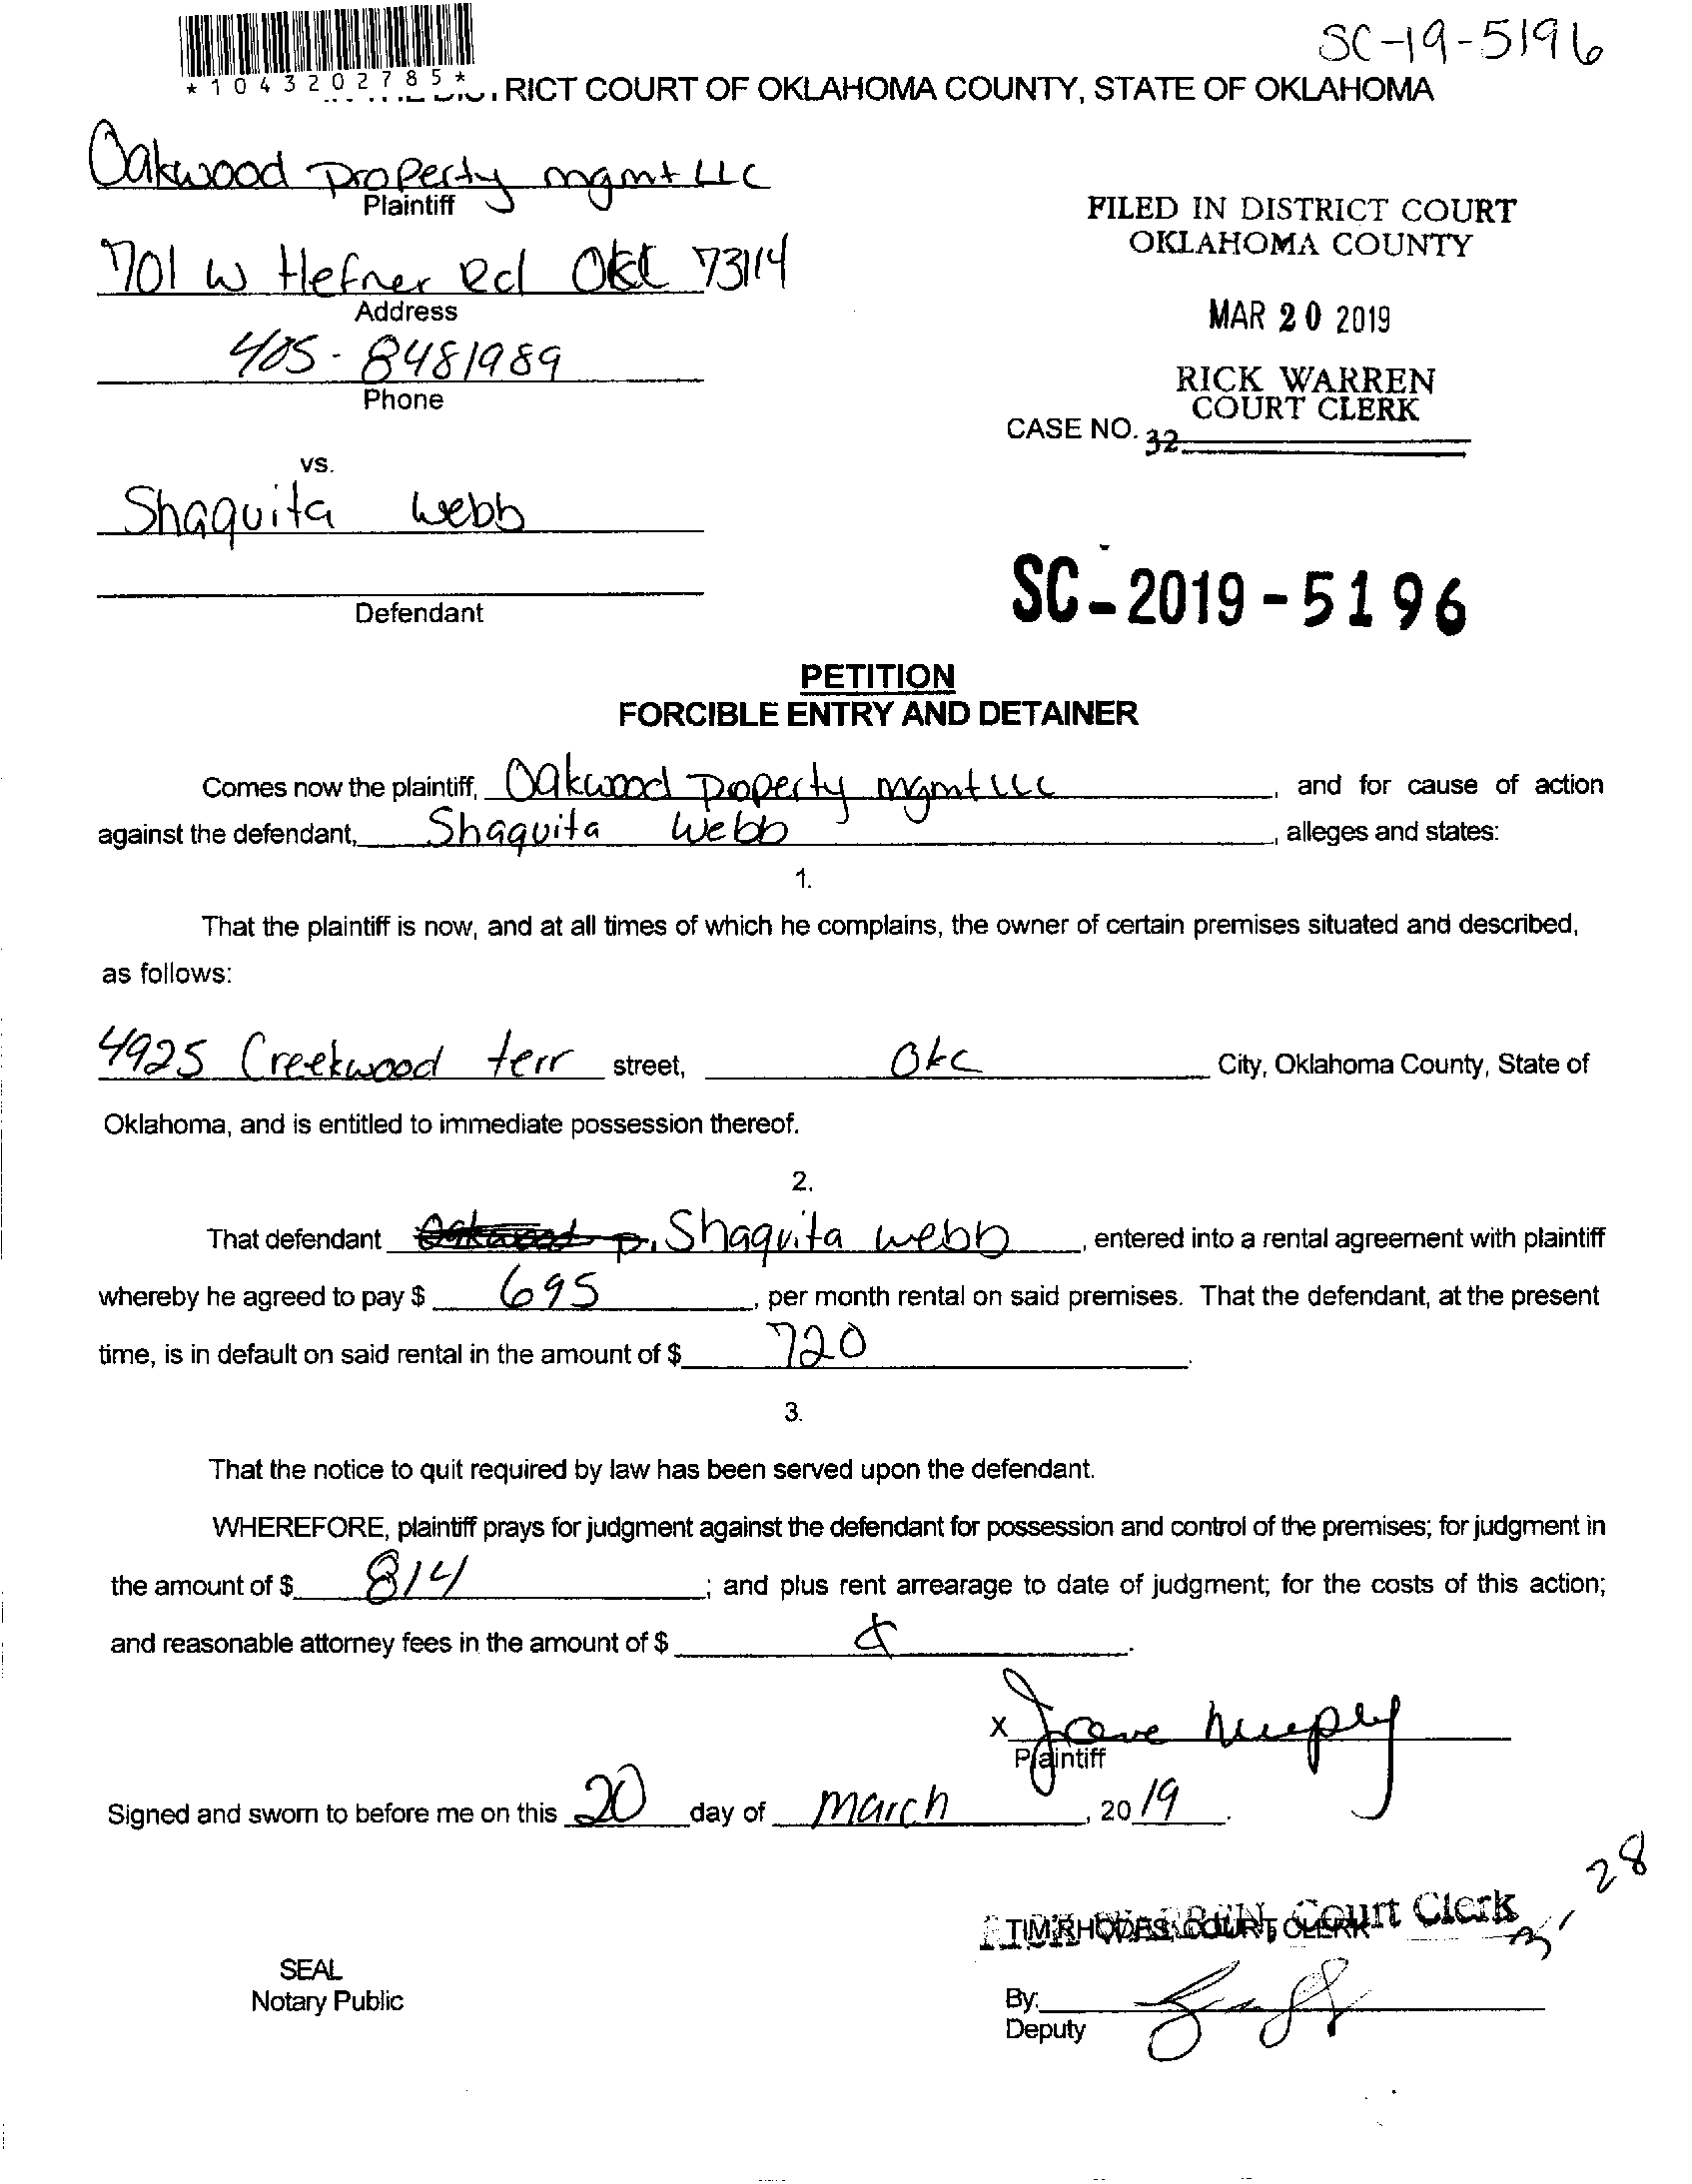 SC-19-5196
*1043202785*
RICT COURT OF OKLAHOMA COUNTY, STATE OF OKLAHOMA
Oakwood Property mgmt LLC
Plaintiff
701 W Hefner Rd OKC 73114
Address
405-8481989
Phone
FILED IN DISTRICT COURT
OKLAHOMA COUNTY
MAR 20 2019
RICK WARREN
COURT CLERK
CASE NO. 32
vs.
Shaquita Webb
Defendant
SC-2019-5196
PETITION
FORCIBLE ENTRY AND DETAINER
Comes now the plaintiff, Oakwood Property mgmt LLC, and for cause of action
against the defendant, Shaquita Webb, alleges and states:
1.
That the plaintiff is now, and at all times of which he complains, the owner of certain premises situated and described,
as follows:
4925 Creekwood terr street, OKC City, Oklahoma County, State of
Oklahoma, and is entitled to immediate possession thereof.
2.
That defendant Shaquita webb, entered into a rental agreement with plaintiff
whereby he agreed to pay $ 695, per month rental on said premises. That the defendant, at the present
time, is in default on said rental in the amount of $ 720.
3.
That the notice to quit required by law has been served upon the defendant.
WHEREFORE, plaintiff prays for judgment against the defendant for possession and control of the premises; for judgment in
the amount of $ 814; and plus rent arrearage to date of judgment; for the costs of this action;
and reasonable attorney fees in the amount of $
x
Plaintiff
Signed and sworn to before me on this 20 day of march, 2019.
28
TIM RHODES, COURT CLERK
Court Clerk
SEAL
Notary Public
By:
Deputy